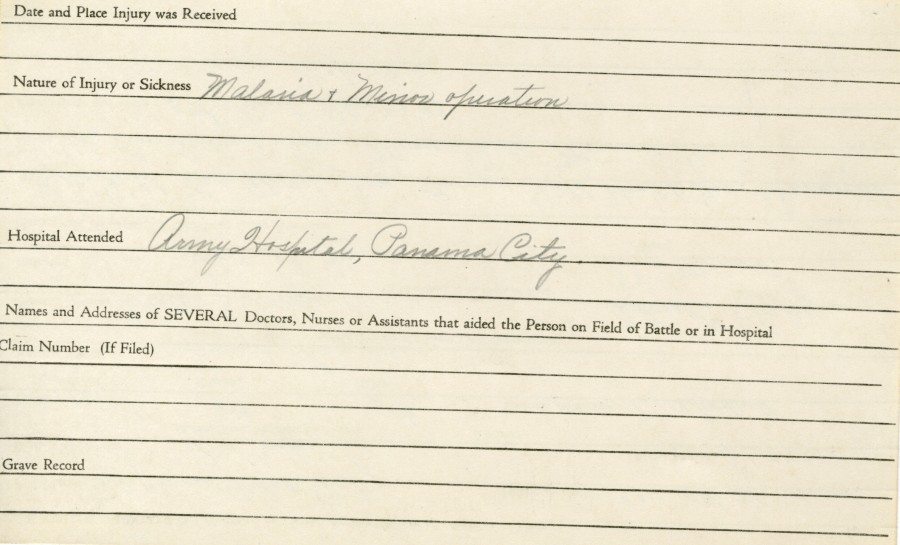 Date and Place Injury was Received
Nature of Injury or Sickness Malaria & Minor operation
Hospital Attended Army Hospital, Panama City.
Names and Addresses of SEVERAL Doctors, Nurses or Assistants that aided the Person on Field of Battle or in Hospital
Claim Number (If Filed)
Grave Record